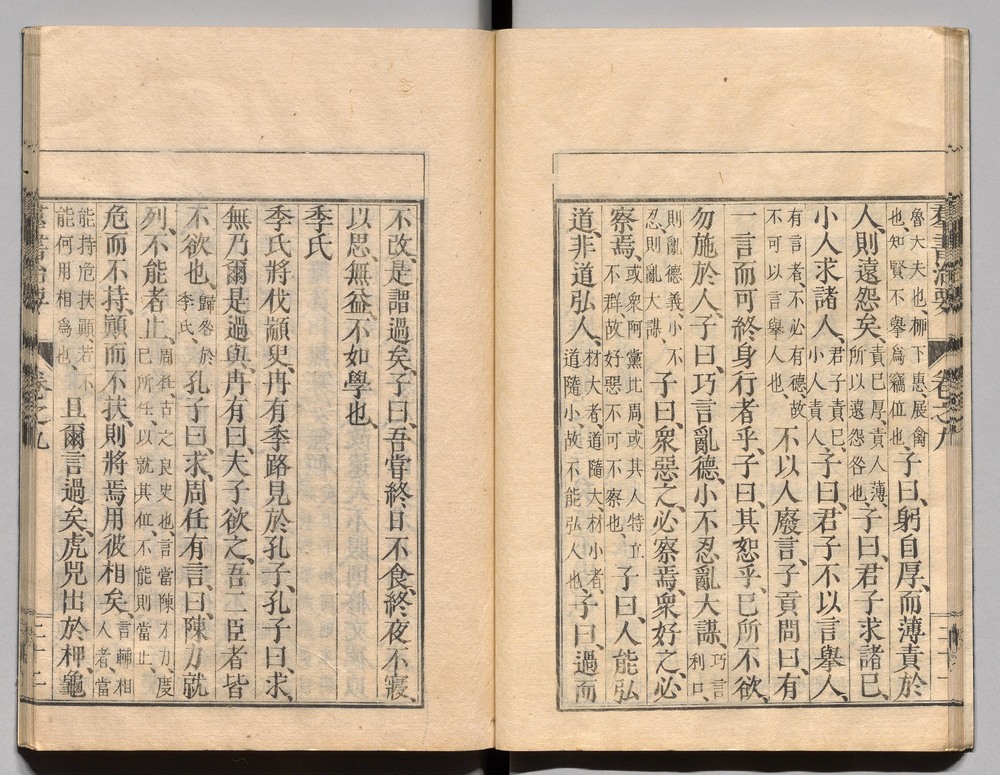 羣書治要 卷之九 二十一
魯大夫也、柳下惠、展禽也、知賢不舉爲竊位也、子曰、躬自厚、而薄責於
人、則遠怨矣、責己厚、責人薄、所以遠怨咎也、子曰、君子求諸己、
小人求諸人、君子責己、小人責人、子曰、君子不以言舉人、
有言者、不必有德、故不可以言舉人也、不以人廢言、子貢問曰、有
一言而可終身行者乎、子曰、其恕乎、己所不欲、
勿施於人、子曰、巧言亂德、小不忍亂大謀、巧言利口、
則亂德義、小不忍、則亂大謀、子曰、衆惡之、必察焉、衆好之、必
察焉、或衆阿黨比周、或其人特立不群、故好惡不可不察也、子曰、人能弘
道、非道弘人、材大者、道隨大、材小者、道隨小、故不能弘人也、子曰、過而
不改、是謂過矣、子曰、吾嘗終日不食、終夜不寢、
以思、無益、不如學也、
季氏
季氏將伐顓臾、冉有季路見於孔子、孔子曰、求、
無乃爾是過與、冉有曰、夫子欲之、吾二臣者皆
不欲也、歸咎於季氏、孔子曰、求、周任有言、曰、陳力就
列、不能者止、周任、古之良史也、言當陳才力、度己所任、以就其位、不能則當止、
危而不持、顚而不扶、則將焉用彼相矣、言輔相人者、當
能持危扶顚、若不能何用相爲也、且爾言過矣、虎兕出於柙、龜
羣書治要 卷之九 二十二